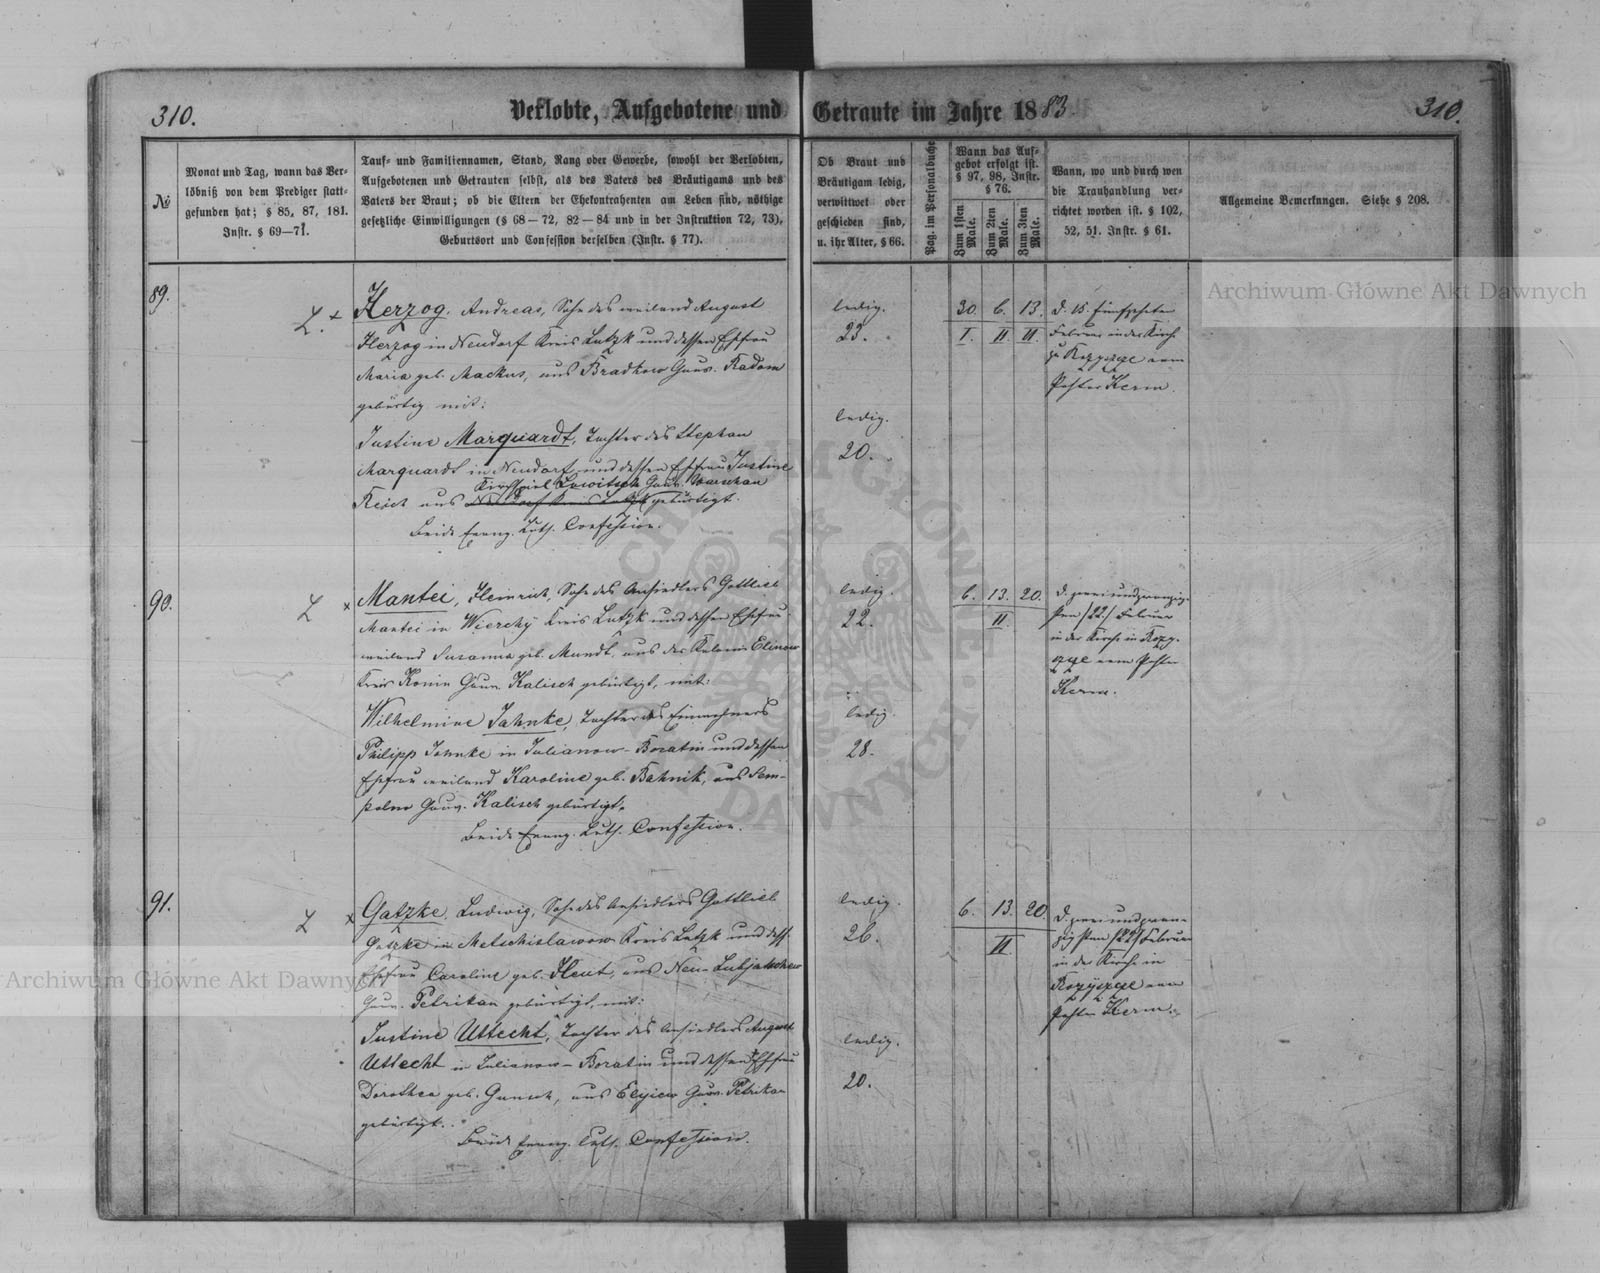 310.
Verlobte, Aufgebotene und Getraute im Jahre 1883.
310.
№
Monat und Tag, wann das Ver-
löbniß von dem Prediger statt-
gefunden hat; § 85, 87, 181.
Instr. § 69—71.
Tauf- und Familiennamen, Stand, Rang oder Gewerbe, sowohl der Verlobten,
Aufgebotenen und Getrauten selbst, als des Vaters des Bräutigams und des
Vaters der Braut; ob die Eltern der Ehekontrahenten am Leben sind, nöthige
gesetzliche Einwilligungen (§ 68—72, 82—84 und in der Instruktion 72, 73),
Geburtsort und Confession derselben (Instr. § 77).
Ob Braut und
Bräutigam ledig,
verwittwet oder
geschieden sind,
u. ihr Alter, § 66.
Pag. im Personalbuche
Wann das Auf-
gebot erfolgt ist.
§ 97, 98, Instr.
§ 76.
Zum 1sten Male.
Zum 2ten Male.
Zum 3ten Male.
Wann, wo und durch wen
die Trauhandlung ver-
richtet worden ist. § 102,
52, 51. Instr. § 61.
Allgemeine Bemerknngen. Siehe § 208.
89.
L. x
Herzog, Andreas, Sohn des weiland August
Herzog in Neudorf Kreis Lutzk und dessen Ehefrau
Maria geb. Mackus, aus Bradkow Gouv. Radom
gebürtig mit:
Justine Marquardt, Tochter des Stephan
Marquardt in Neudorf und dessen Ehefrau Justine
Kirchspiel Lowitsch Gouv. Warschau
Reich aus Neudorf Kreis Lutzk gebürtigt.
Beide Evang. Luth. Confession.
ledig.
23.
ledig.
20.
30. 6. 13.
I. II. II.
d. 15. fünfzehnten
Februar in der Kirche
zu Rozyszcze vom
Pastor Kerm.
90.
L x
Mantei, Heinrich, Sohn des Ansiedlers Gottlieb
Mantei in Wierchy Kreis Lutzk und dessen Ehefrau
weiland Susanna geb. Mundt, aus der Kolonie Elinow
Kreis Konin Gouv. Kalisch gebürtigt, mit:
Wilhelmine Jahnke, Tochter des Einwohners
Philipp Jahnke in Julianow-Boratin und dessen
Ehefrau weiland Karoline geb. Bahnik, aus Sem-
polno Gouv. Kalisch gebürtigt.
Beide Evang. Luth. Confession.
ledig.
22.
ledig.
28.
6. 13. 20.
II.
d. zweiundzwanzig-
sten /22/ Februar
in der Kirche in Rozy-
szcze vom Pastor
Kerm.
91.
L x
Gatzke, Ludwig, Sohn des Ansiedlers Gottlieb
Gatzke in Metschislawow Kreis Lutzk und dess.
Ehefrau Caroline geb. Heut, aus Neu-
Gouv. Petrikau gebürtigt, mit:
Justine Uttecht, Tochter des Ansiedlers August
Uttecht in Julianow-Boratin und dessen Ehefrau
Dorothea geb. Gunsch, aus Gouv. Petrikau
gebürtigt.
Beide Evang. Luth. Confession.
ledig.
26.
ledig.
20.
6. 13. 20.
II
d. zweiundzwan-
zigsten /22/ Februar
in der Kirche in
Rozyszcze vom
Pastor Kerm.
Archiwum Główne Akt Dawnych
Archiwum Główne Akt Dawnych
ARCHIWUM GŁÓWNE AKT DAWNYCH